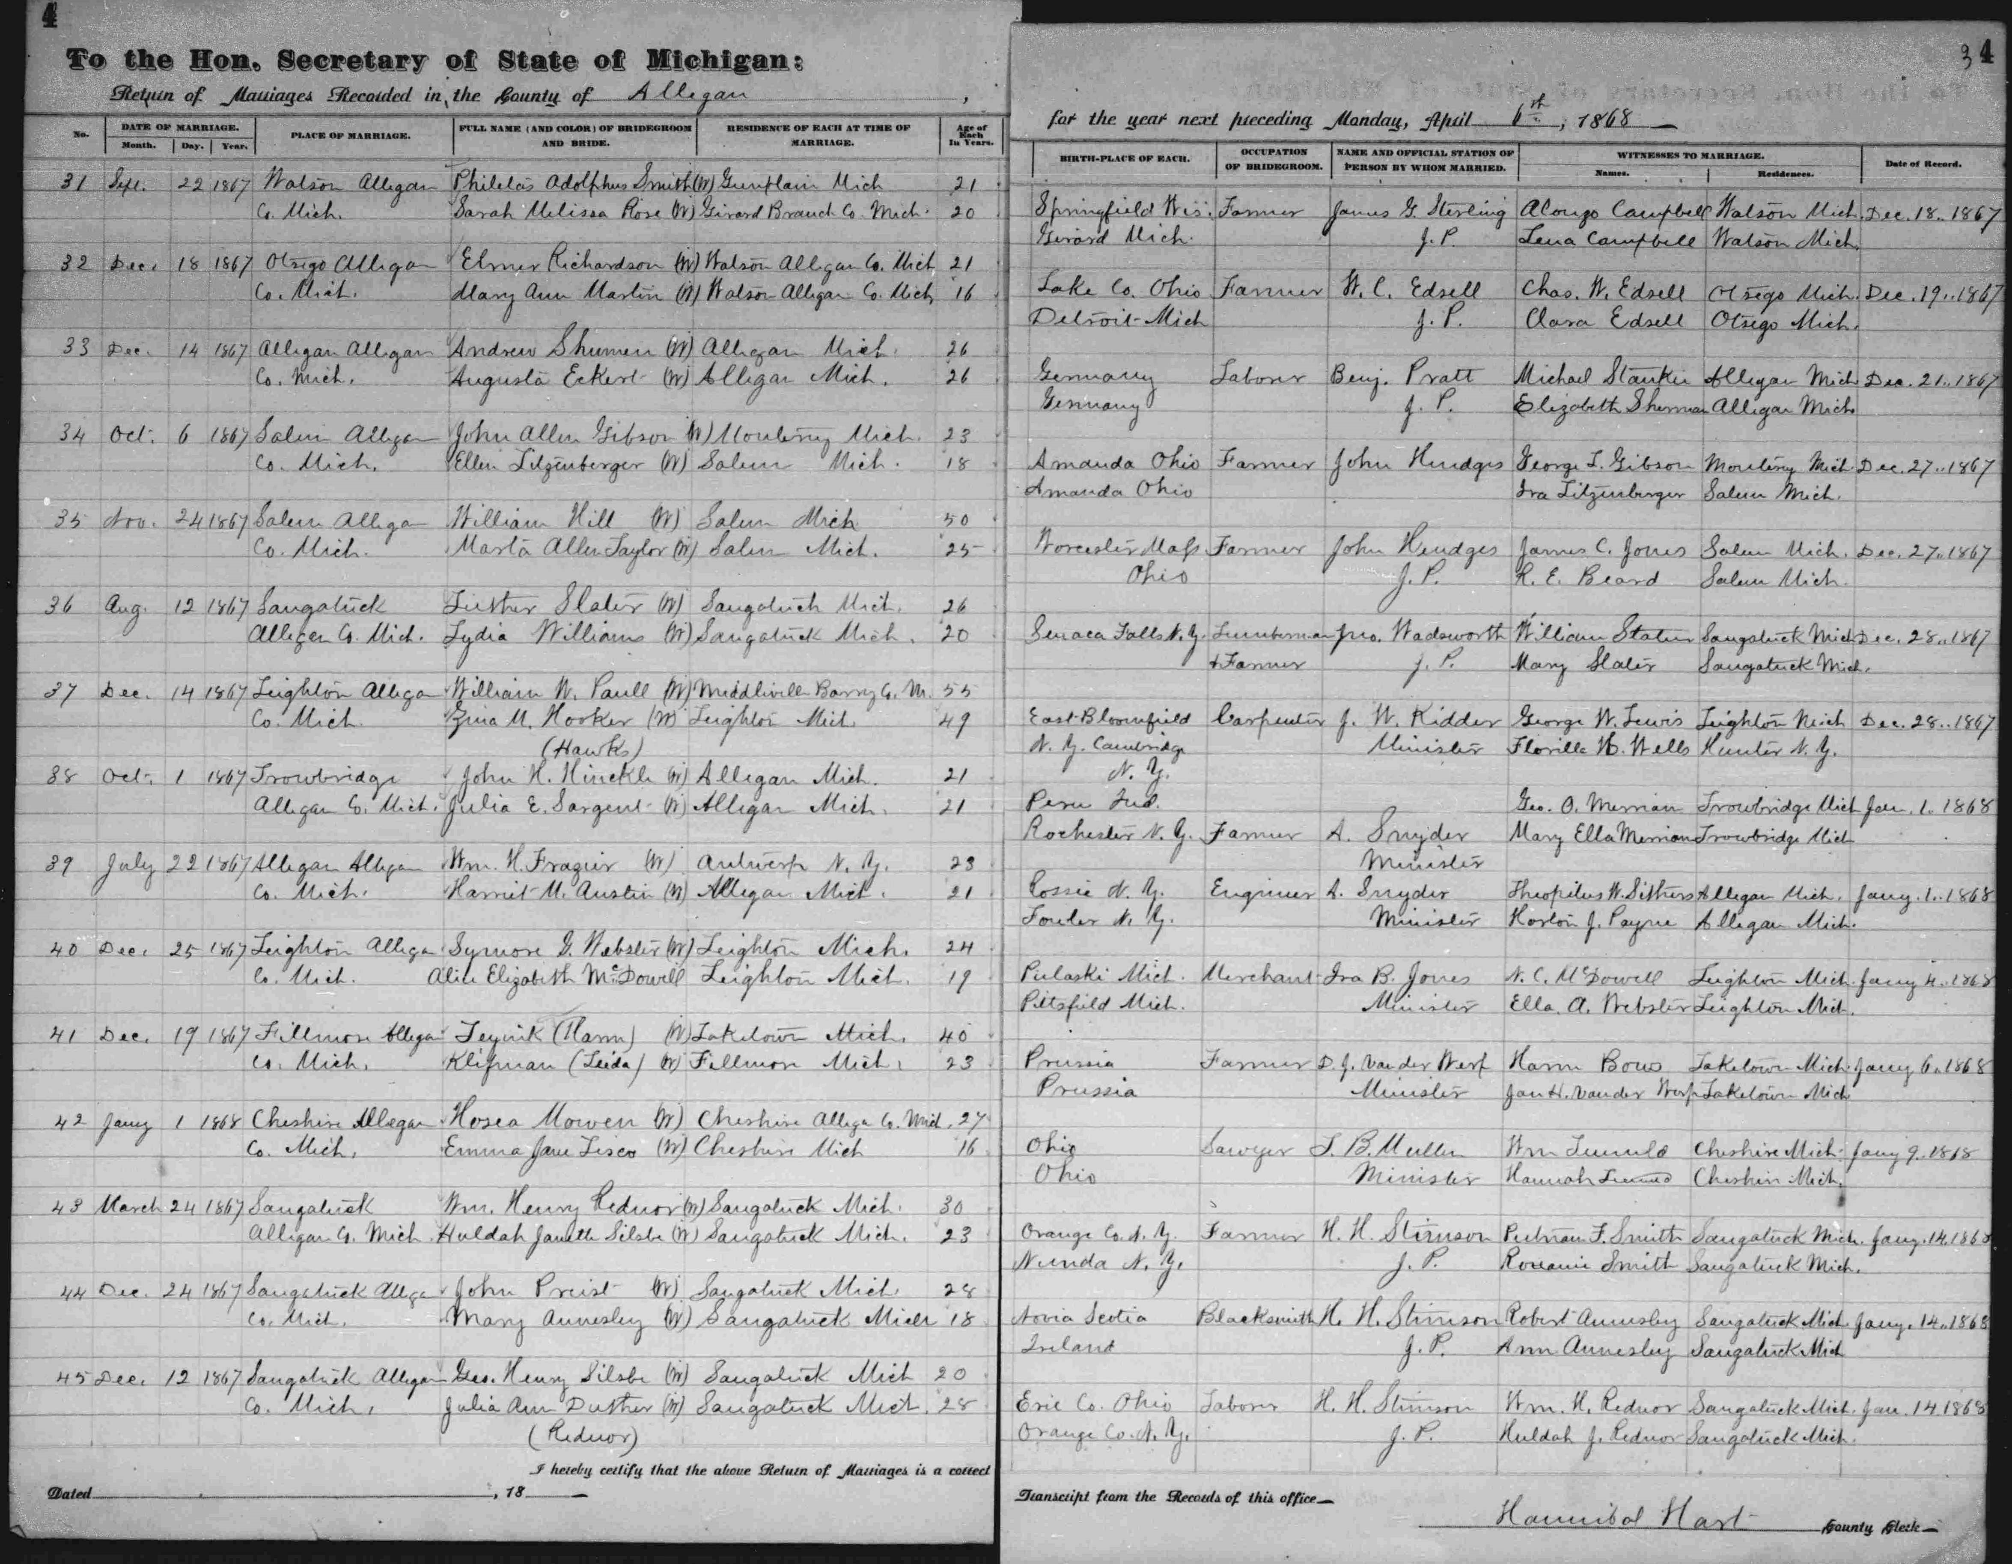 4
To the Hon. Secretary of State of Michigan:
Return of Marriages Recorded in the County of Allegan,
No. DATE OF MARRIAGE. Month. Day. Year. PLACE OF MARRIAGE. FULL NAME (AND COLOR) OF BRIDEGROOM AND BRIDE. RESIDENCE OF EACH AT TIME OF MARRIAGE. Age of Each In Years.
31 Sept. 22 1867 Watson Allegan Philetas Adolphus Smith (W) Gunplain Mich 21
Co. Mich. Sarah Melissa Rose (W) Girard Branch Co. Mich. 20
32 Dec. 18 1867 Otsego Allegan Elmer Richardson (W) Watson Allegan Co. Mich 21
Co. Mich. Mary Ann Martin (W) Watson Allegan Co. Mich 16
33 Dec. 14 1867 Allegan Allegan Andrew Shumen (W) Allegan Mich. 26
Co. Mich. Augusta Eckert (W) Allegan Mich. 26
34 Oct. 6 1867 Salem Allegan John Allen Gibson (W) Monterey Mich. 23
Co. Mich. Ellen Litzenberger (W) Salem Mich. 18
35 Nov. 24 1867 Salem Allegan William Hill (W) Salem Mich 50
Co. Mich. Marta Allen Taylor (W) Salem Mich. 25
36 Aug. 12 1867 Saugatuck Luther Slater (W) Saugatuck Mich. 26
Allegan Co. Mich. Lydia Williams (W) Saugatuck Mich. 20
37 Dec. 14 1867 Leighton Allegan William W. Paull (W) Middleville Barry Co. M. 55
Co. Mich. M. Hooker (W) Leighton Mich. 49
(Hawks)
38 Oct. 1 1867 Trowbridge John H. Hinckle (W) Allegan Mich. 21
Allegan Co. Mich. Julia E. Sargent (W) Allegan Mich. 21
39 July 22 1867 Allegan Allegan Wm. H. Frazier (W) Antwerp N. Y. 23
Co. Mich. Harriet M. Austin (W) Allegan Mich. 21
40 Dec. 25 1867 Leighton Allegan Symore G. Webster (W) Leighton Mich. 24
Co. Mich. Alice Elizabeth McDowell Leighton Mich. 19
41 Dec. 19 1867 Fillmore Allegan (Harm) (W) Laketown Mich. 40
Co. Mich. Klifman (Leida) (W) Fillmore Mich. 23
42 Jany 1 1868 Cheshire Allegan Hosea Mowen (W) Cheshire Allegan Co. Mich. 27
Co. Mich. Emma Jane Lisco (W) Cheshire Mich 16
43 March 24 1867 Saugatuck Wm. Henry Rednor (W) Saugatuck Mich. 30
Allegan Co. Mich. Huldah Janette Silsbe (W) Saugatuck Mich. 23
44 Dec. 24 1867 Saugatuck Allegan John Preist (W) Saugatuck Mich. 28
Co. Mich. Mary Annesley (W) Saugatuck Mich 18
45 Dec. 12 1867 Saugatuck Allegan Geo. Henry Silsbe (W) Saugatuck Mich 20
Co. Mich. Julia Ann Duther (W) Saugatuck Mich. 28
(Rednor)
I hereby certify that the above Return of Marriages is a correct
Dated , 18
34
for the year next preceding Monday, April 6th, 1868
BIRTH-PLACE OF EACH. OCCUPATION OF BRIDEGROOM. NAME AND OFFICIAL STATION OF PERSON BY WHOM MARRIED. WITNESSES TO MARRIAGE. Names. Residences. Date of Record.
Springfield Wis. Farmer James G. Sterling Alonzo Campbell Watson Mich. Dec. 18. 1867
Girard Mich. J. P. Lena Campbell Watson Mich.
Lake Co. Ohio Farmer W. C. Edsell Chas. W. Edsell Otsego Mich. Dec. 19. 1867
Detroit Mich J. P. Clara Edsell Otsego Mich.
Germany Laborer Benj. Pratt Michael Allegan Mich Dec. 21. 1867
Germany J. P. Elizabeth Sherman Allegan Mich.
Amanda Ohio Farmer John Hudges George L. Gibson Monterey Mich Dec. 27. 1867
Amanda Ohio Ira Litzenberger Salem Mich.
Worcester Mass. Farmer John Hendges James C. Jones Salem Mich. Dec. 27. 1867
Ohio J. P. R. E. Beard Salem Mich.
Senaca Falls N. Y. Lumberman Jno. Wadsworth William Slater Saugatuck Mich Dec. 28. 1867
& Farmer J. P. Mary Slater Saugatuck Mich.
East Bloomfield Carpenter J. W. Kidder George W. Lewis Leighton Mich Dec. 28. 1867
N. Y. Cambridge Minister Florilla W. Wells Hunter N. Y.
N. Y.
Peru Ind. Geo. O. Merrian Trowbridge Mich Jan. 1. 1868
Rochester N. Y. Farmer A. Snyder Mary Ella Merrian Trowbridge Mich
Minister
Rossie N. Y. Engineer A. Snyder Theopilus W. Allegan Mich. Jany. 1. 1868
Fowler N. Y. Minister Horton J. Payne Allegan Mich.
Pulaski Mich. Merchant Ira B. Jones N. C. McDowell Leighton Mich. Jany 4. 1868
Pittsfield Mich. Minister Ella. A. Webster Leighton Mich.
Prussia Farmer D. J. Vander Werf Harm Bows Laketown Mich. Jany 6. 1868
Prussia Minister Jan H. Vander Werf Laketown Mich
Ohio Sawyer L. B. Mullen Wm Cheshire Mich. Jany 9. 1868
Ohio Minister Hannah Cheshire Mich.
Orange Co. N. Y. Farmer H. H. Stimson Putnam F. Smith Saugatuck Mich. Jany. 14. 1868
Nunda N. Y. J. P. Smith Saugatuck Mich.
Novia Scotia Blacksmith H. H. Stimson Robert Annesley Saugatuck Mich Jany. 14. 1868
Ireland J. P. Ann Annesley Saugatuck Mich
Erie Co. Ohio Laborer H. H. Stimson Wm. H. Rednor Saugatuck Mich. Jan. 14 1868
Orange Co. N. Y. J. P. Huldah J. Rednor Saugatuck Mich.
Transcript from the Records of this office
Hannibal Hart County Clerk